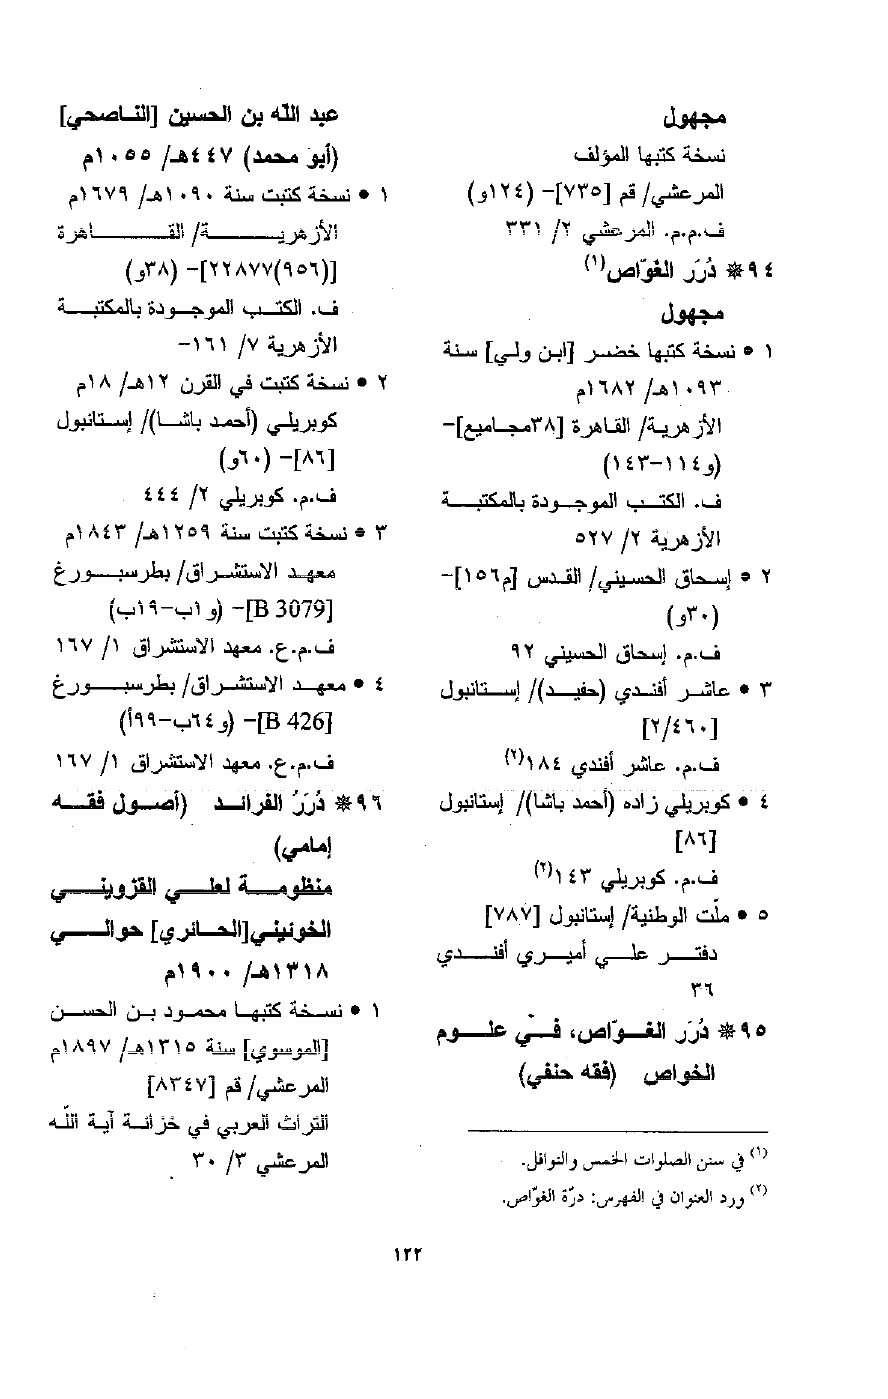 مجهول
نسخة كتبها المؤلف
المرعشي/ قم [٧٣٥]- (١٢٤و)
ف.م.م. المرعشي ٢/ ٣٣١
٩٤* دُرَر الغوّاص(١)
مجهول
١ • نسخة كتبها خضر [ابن ولي] سنة
١٠٩٣هـ/ ١٦٨٢م
الأزهرية/ القاهرة [٣٨مجاميع]-
(و١١٤-١٤٣)
ف. الكتب الموجودة بالمكتبة
الأزهرية ٢/ ٥٢٧
٢ • إسحاق الحسيني/ القدس [م١٥٦]-
(٣٠و)
ف.م. إسحاق الحسيني ٩٢
٣ • عاشر أفندي (حفيد)/ إستانبول
[٢/٤٦٠]
ف.م. عاشر أفندي ١٨٤(٢)
٤ • كوبريلي زاده (أحمد باشا)/ إستانبول
[٨٦]
ف.م. كوبريلي ١٤٣(٢)
٥ • ملّت الوطنية/ إستانبول [٧٨٧]
دفتر علي أميري أفندي
٣٦
٩٥* دُرَر الغوّاص، في علوم
الخواص (فقه حنفي)
عبد الله بن الحسين [الناصحي]
(أبو محمد) ٤٤٧هـ/ ١٠٥٥م
١ • نسخة كتبت سنة ١٠٩٠هـ/ ١٦٧٩م
الأزهرية/ القاهرة
[(٩٥٦)٢٢٨٧٧]- (٣٨و)
ف. الكتب الموجودة بالمكتبة
الأزهرية ٧/ ١٦١-
٢ • نسخة كتبت في القرن ١٢هـ/ ١٨م
كوبريلي (أحمد باشا)/ إستانبول
[٨٦]- (٦٠و)
ف.م. كوبريلي ٢/ ٤٤٤
٣ • نسخة كتبت سنة ١٢٥٩هـ/ ١٨٤٣م
معهد الاستشراق/ بطرسبورغ
[B 3079]- (و١ب-١٩ب)
ف.م.ع. معهد الاستشراق ١/ ١٦٧
٤ • معهد الاستشراق/ بطرسبورغ
[B 426]- (و٦٤ب-٩٩أ)
ف.م.ع. معهد الاستشراق ١/ ١٦٧
٩٦* دُرَرُ الفرائد (أصول فقه
إمامي)
منظومة لعلي القزويني
الخوئيني[الحائري] حوالي
١٣١٨هـ/ ١٩٠٠م
١ • نسخة كتبها محمود بن الحسن
[الموسوي] سنة ١٣١٥هـ/ ١٨٩٧م
المرعشي/ قم [٨٣٤٧]
التراث العربي في خزانة آية اللّه
المرعشي ٣/ ٣٠
(١) في سنن الصلوات الخمس والنوافل.
(٢) ورد العنوان في الفهرس: درّة الغوّاص.
١٢٢